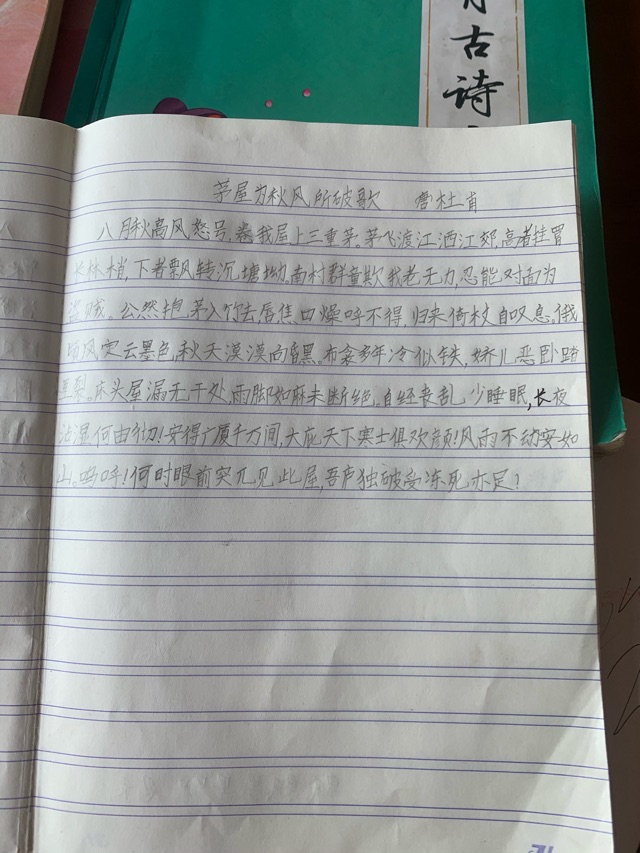 古诗
茅屋为秋风所破歌 唐杜甫
八月秋高风怒号,卷我屋上三重茅。茅飞渡江洒江郊,高者挂罥
长林梢,下者飘转沉塘坳。南村群童欺我老无力,忍能对面为
盗贼。公然抱茅入竹去,唇焦口燥呼不得,归来倚杖自叹息。俄
顷风定云墨色,秋天漠漠向昏黑。布衾多年冷似铁,娇儿恶卧踏
里裂。床头屋漏无干处,雨脚如麻未断绝。自经丧乱少睡眠,长夜
沾湿何由彻!安得广厦千万间,大庇天下寒士俱欢颜!风雨不动安如
山。呜呼!何时眼前突兀见此屋,吾庐独破受冻死亦足!